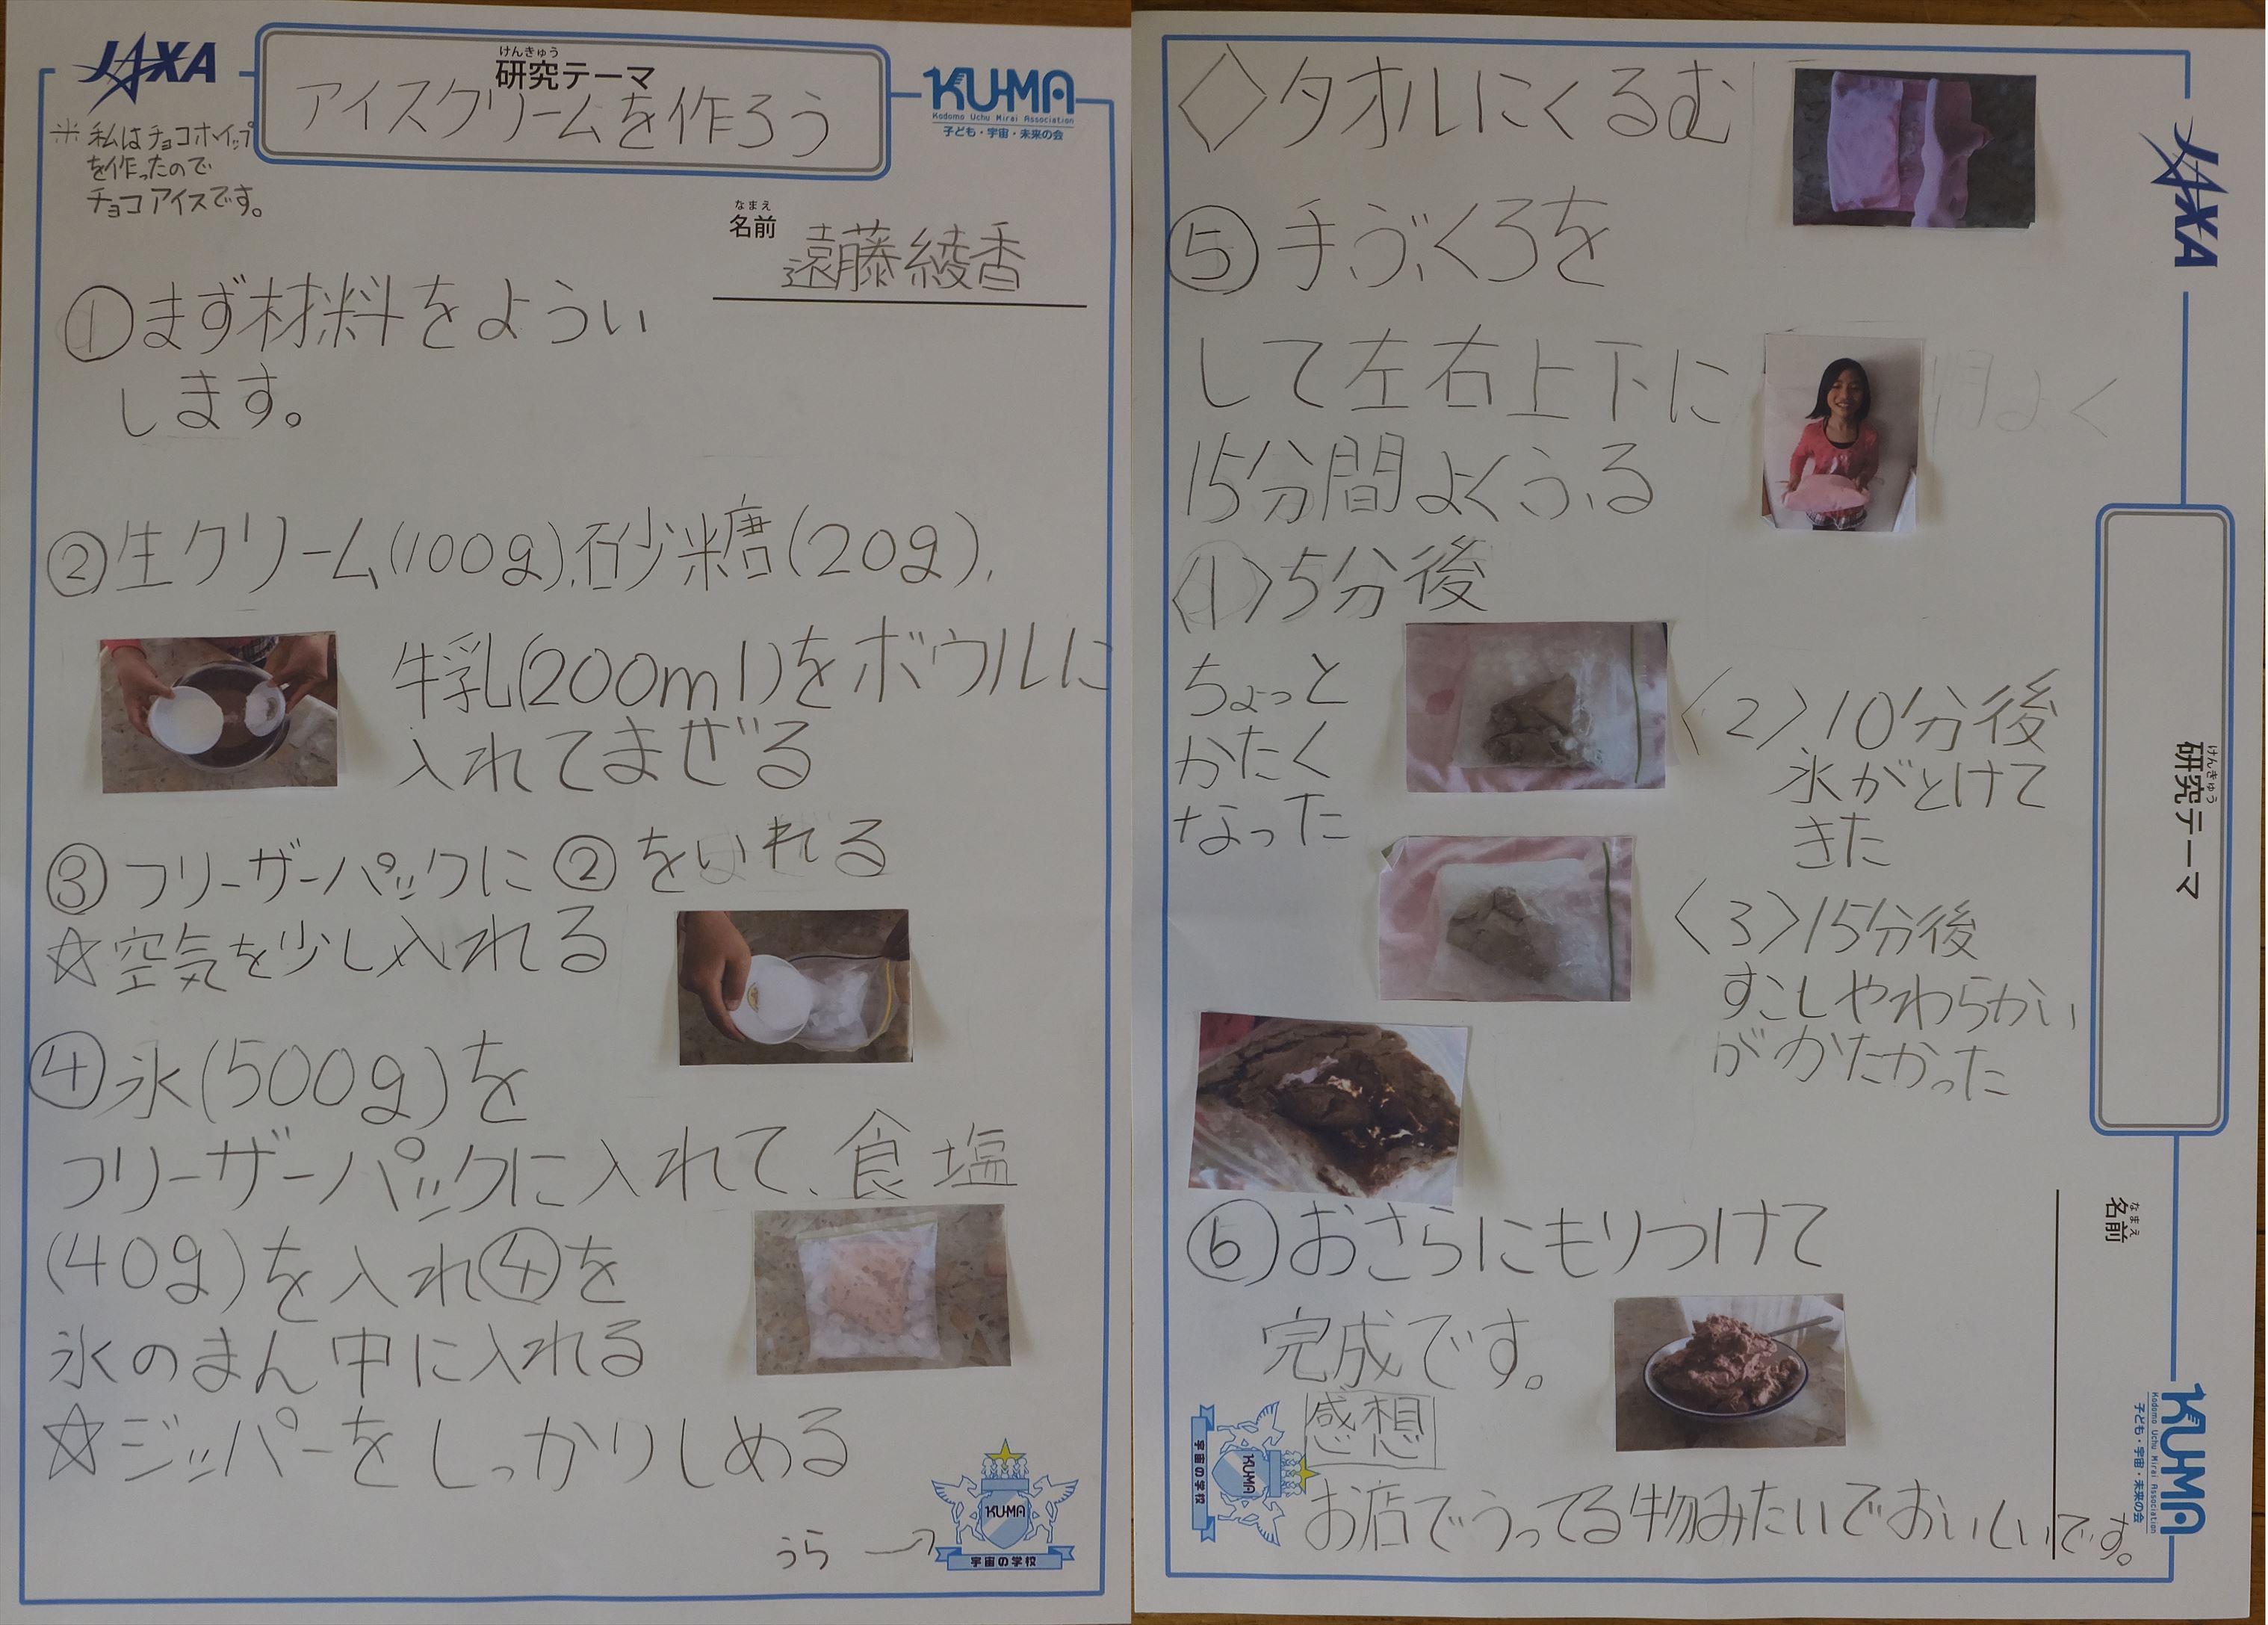 JAXA
けんきゅう
研究テーマ
アイスクリームを作ろう
KU-MA
Kodomo Uchu Mirai Association
子ども・宇宙・未来の会
※私はチョコホイップ
を作ったので
チョコアイスです。
なまえ
名前
遠藤綾香
①まず材料をようい
します。
②生クリーム(100g)、砂糖(20g)、
牛乳(200ml)をボウルに
入れてまぜる
③フリーザーパックに②をいれる
☆空気を少し入れる
④氷(500g)を
フリーザーパックに入れて、食塩
(40g)を入れ④を
氷のまん中に入れる
☆ジッパーをしっかりしめる
うら→
KU-MA
宇宙の学校
◇タオルにくるむ
⑤手ぶくろを
して左右上下に
15分間よくふる
〈1〉5分後
ちょっと
かたく
なった
〈2〉10分後
氷がとけて
きた
〈3〉15分後
すこしやわらかい
がかたかった
⑥おさらにもりつけて
完成です。
感想
お店でうってる物みたいでおいしいです。
JAXA
けんきゅう
研究テーマ
なまえ
名前
KU-MA
Kodomo Uchu Mirai Association
子ども・宇宙・未来の会
KU-MA
宇宙の学校